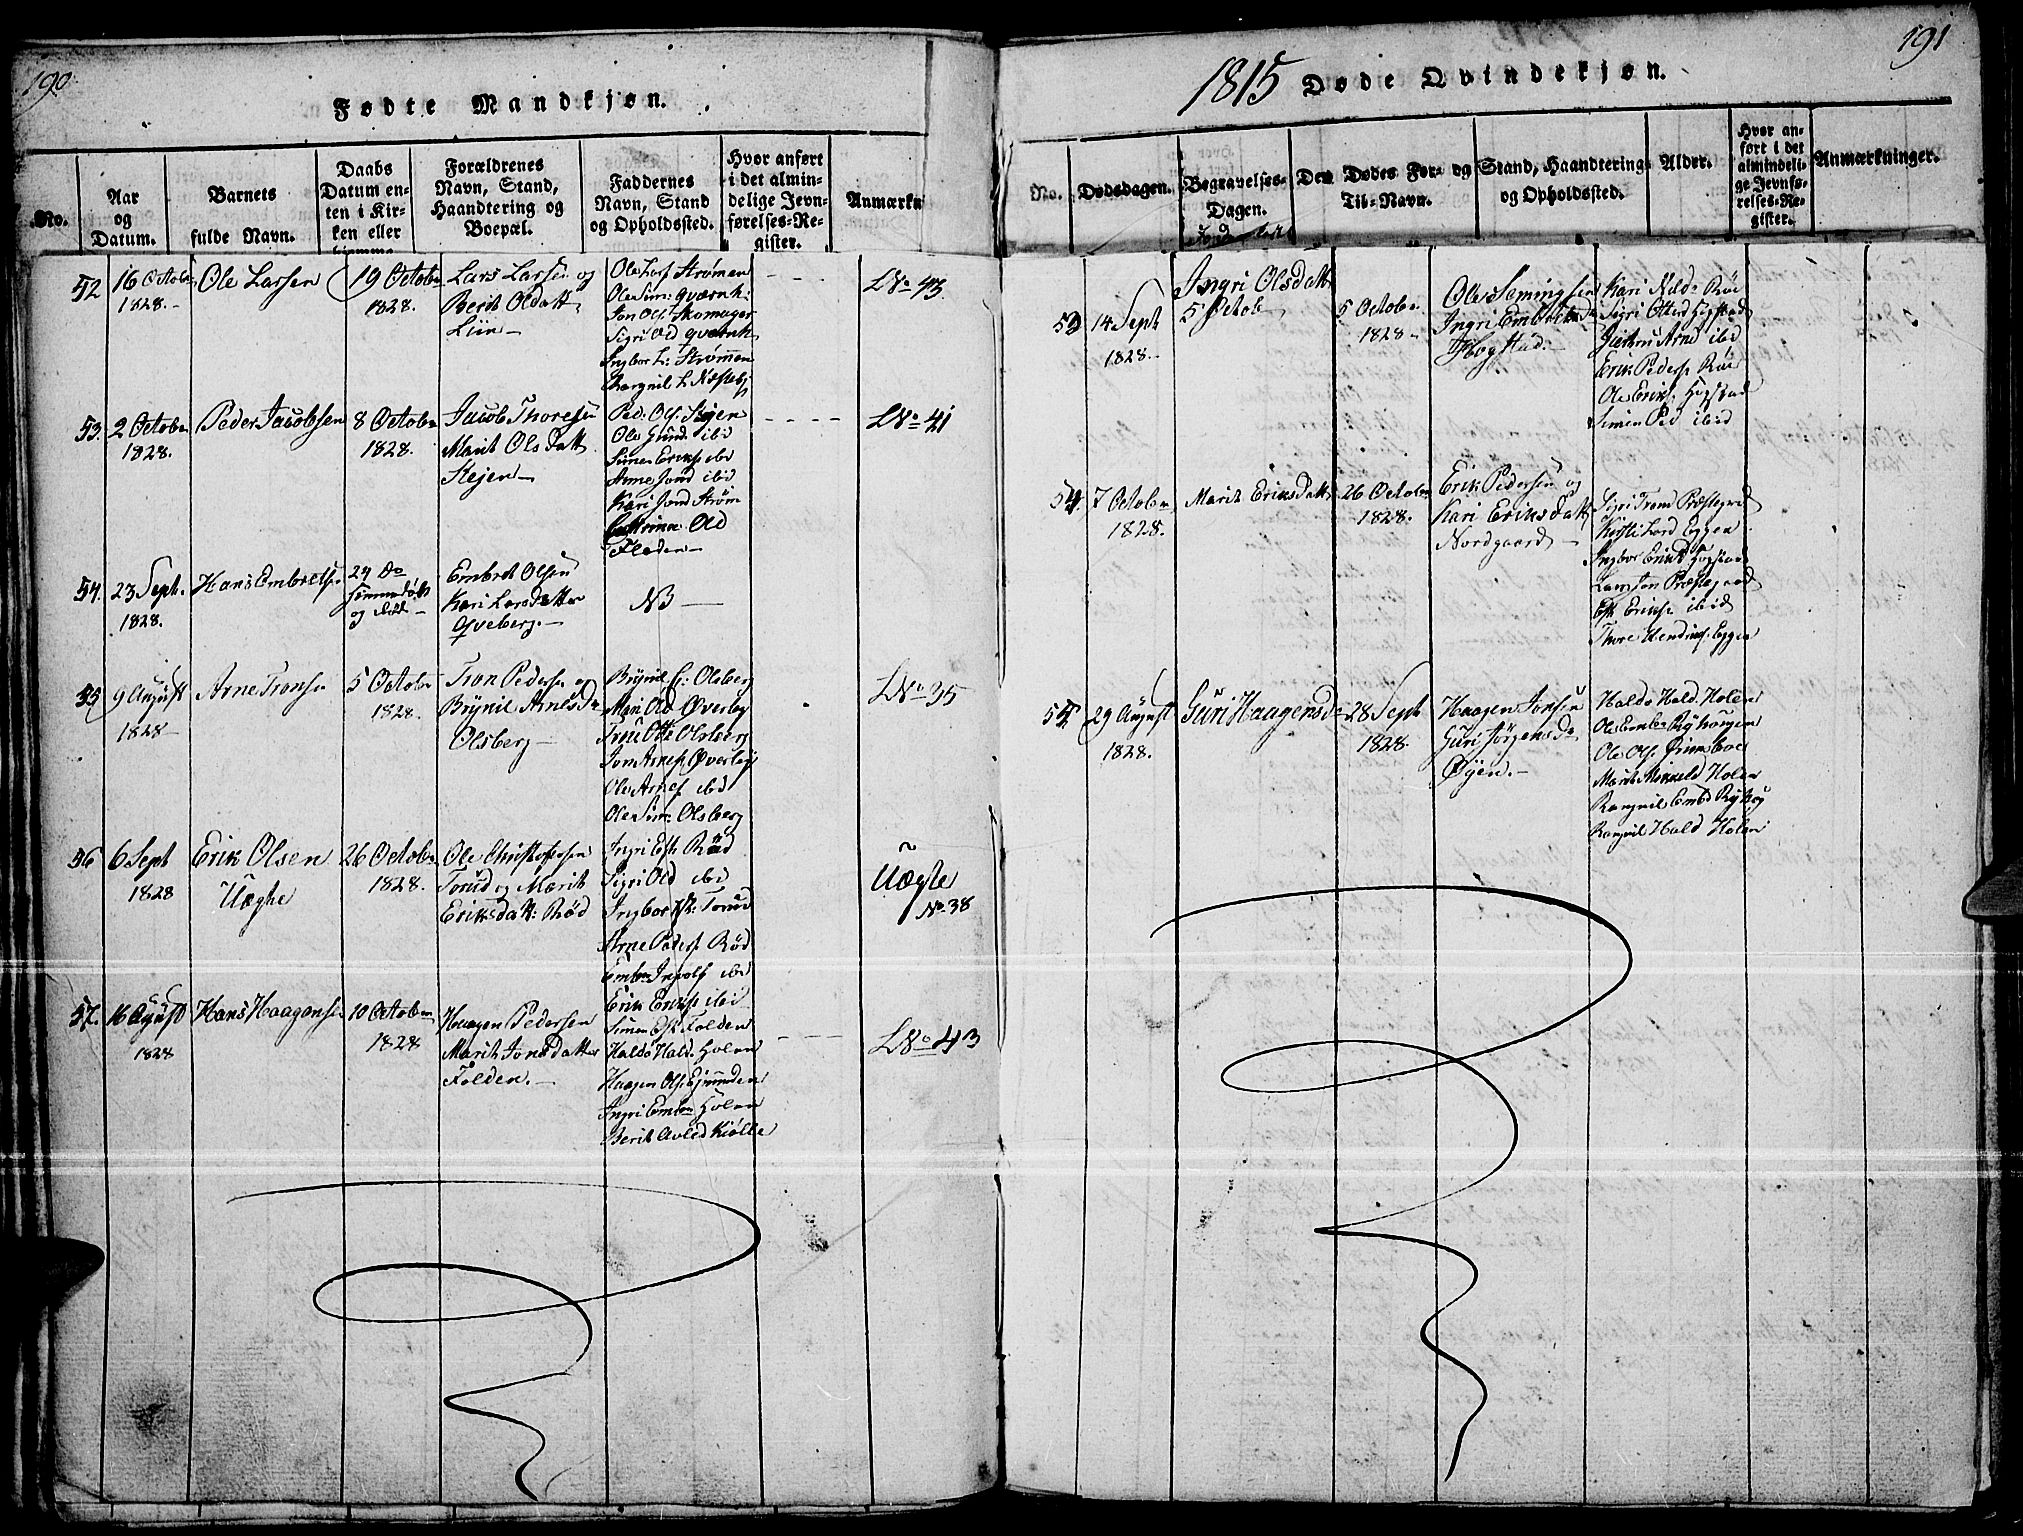 190
Fødte Mandkjøn.
No.
Aar
og
Datum.
Barnets
fulde Navn.
Daabs
Datum en-
ten i Kir-
ken eller
Forældrenes
Navn, Stand,
Haandtering og
Boepæl.
Faddernes
Navn, Stand
og Opholdssted.
Hvor anført
i det almin-
delige Jevn-
førelses-Re-
gister.
Anmærkn
52
16 Octobr
1828.
Ole Larsen
19 Octobr
1828.
Lars Larsen og
Berit Olsdatt
Liin
Ole Larss Strømen
Ole Sim: Qværnh:
Jon Ols Skomager
Sigri Old Qværnh
Ingbor L: Strømmen
L No 43.
53.
2 Octobr
1828.
Peder Jacobsen
8 Octobr
1828.
Jacob Thoresen
Marit Olsdatt
Kejen
Ped: Ols:
Ole Gund: ibid
Simen Eriks ibd
Anne Jond ibid
Kari Jond Strøm
Old
Floden
L No 41
54.
23 Sept.
1828.
Hans Embretsen
24 Do
og
Embret Olsen
Kari Larsdatter
Qveberg.
NB
55
9 August
1828
Arne Tronsen
5 Octobr
1828.
Tron Pedersen og
Brynil Arnesdr
Olsberg
Brynil E: Olsberg
Mari Old Øverby
Otte Olsberg
Jon Arnes Øverby
Ole Arnes ibd
Ole Sim: Olsberg
L No 35
56
6 Sept
1828
Erik Olsen
Uægte
26 Octobr
1828.
Ole Christophersen
Torud og Marit
Eriksdatt: Rød
Ingri Rød
Sigri Old ibd
Ingbor Torud
Arne Peders Rød
Emb: Ingvols ibd
Erik Eriks ibi
Uægte
No 38
57.
16 August
1828
Hans Haagensen
10 Octobr
1828
Haagen Pedersen
Marit Jonsdatter
Folden.
Simen Folden
Haldo Hald: Holen
Haagen Ols
Ingri Embr Holen
Berit Kiølle
L No 43
191
1815 Døde Qvindekjøn.
No.
Dødsdagen.
Begravelses-
Dagen.
Den Dødes For- og
Til-Navn.
Stand, Haandtering
og Opholdssted.
Alder.
Hvor an-
ført i det
almindeli-
ge Jevnfø-
relses-Re-
gister.
Anmærkninger.
53
14 Sept
1828.
Ingri Olsdatt
5 Octob
5 Octobr
1828
Ole Semingsen
Ingri
Hogstad.
Kari Nilsd Røe
Sigri Otted Hogstad
Arne ibid
Erik Peders Røe
Ole Eriks: Hogstad
Simen Ped ibid
54.
7 Octobr
1828.
Marit Eriksdatt
26 Octobr
1828.
Erik Pedersen og
Kari Eriksdatt
Nordgaard
Sigri Præstegrd
Eggen
Ingbor Hogstad
Lars Jon Præstegaard
Eriks ibid
Thore Hendriks: Eggen
55
29 August
1828.
Guri Haagensdr
28 Sept
1828.
Haagen Jonsen
Guri Jørgensdr
Øyen.
Haldo Hald: Holen
Ole Embr Ryhougen
Ole Ols
Marit Mikkeld Holen
Rangnil Embd Ryhog
Rangnil Hald Holen